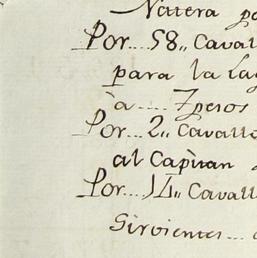 Natera po
Por....58,, Cavall
para la Lag
à.... 7 pesos
Por... 2,, Cavallo
al Capitan
Por... 14,, Cavall
Sirvientes...